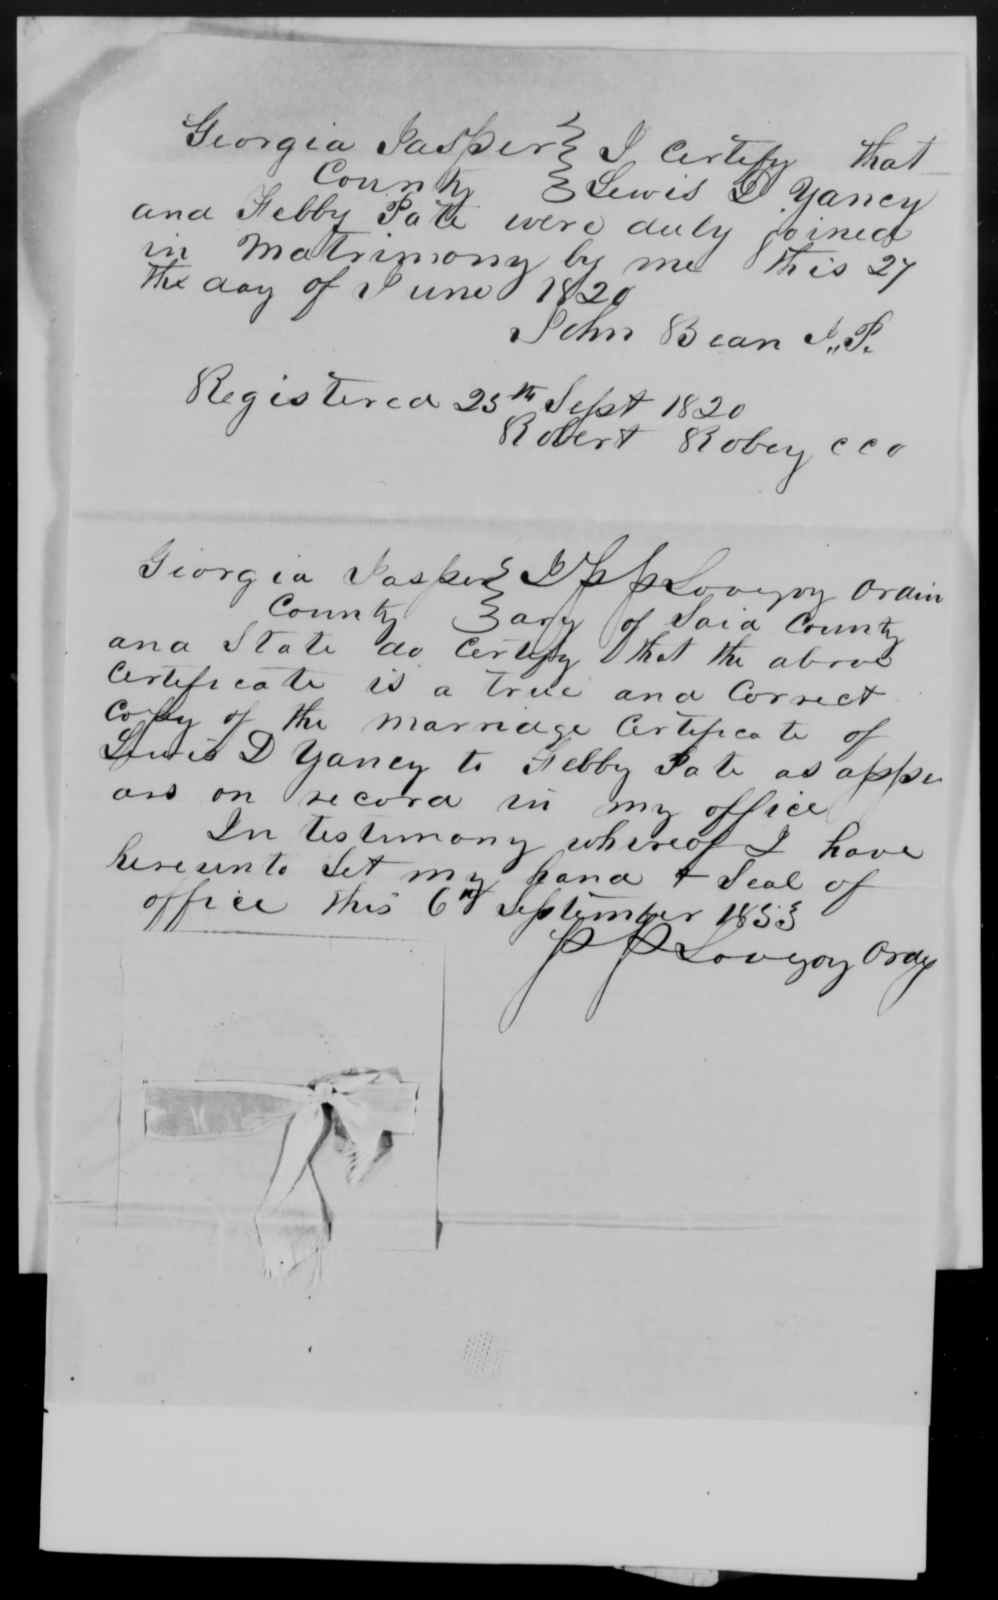 Georgia Jasper } I Certify that
County } Lewis D Yancy
and Febby Pate were duly joined
in Matrimony by me this 27
the day of June 1820
John Bean J.P.
Registered 25th Sept 1820
Robert Robey C C O
Georgia Jasper } I P P Lovejoy Ordin
County } ary of Said County
and State do Certify that the above
Certificate is a true and Correct
Copy of the marriage Certificate of
Lewis D Yancy to Febby Pate as appe
ars on record in my office
In testimony whereof I have
hereunto Set my hand & Seal of
office this 6th September 1853
P P Lovejoy Ordy